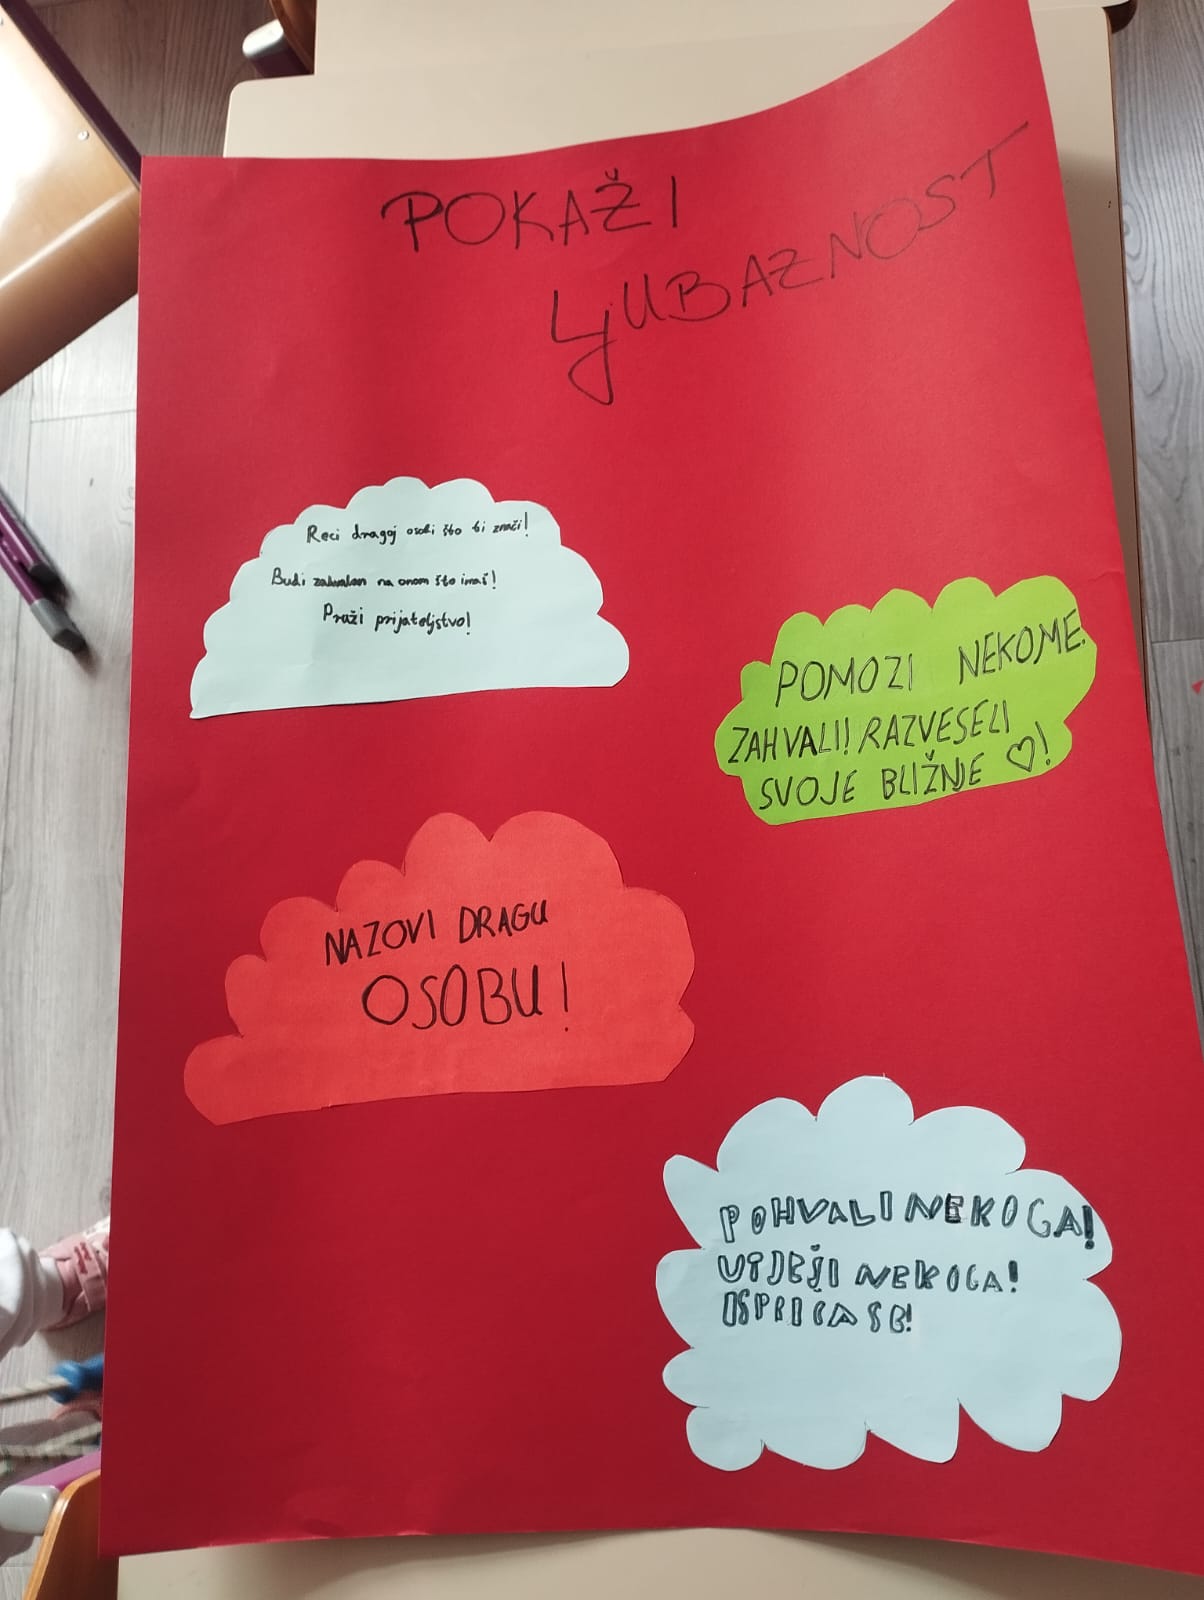 POKAŽI
LJUBAZNOST
Reci dragoj osobi što ti znači!
Budi zahvalan na onom što imaš!
Pruži prijateljstvo!
POMOZI NEKOME.
ZAHVALI! RAZVESELI
SVOJE BLIŽNJE ♡!
NAZOVI DRAGU
OSOBU!
POHVALI NEKOGA!
UTJEŠI NEKOGA!
ISPRIČA SE!